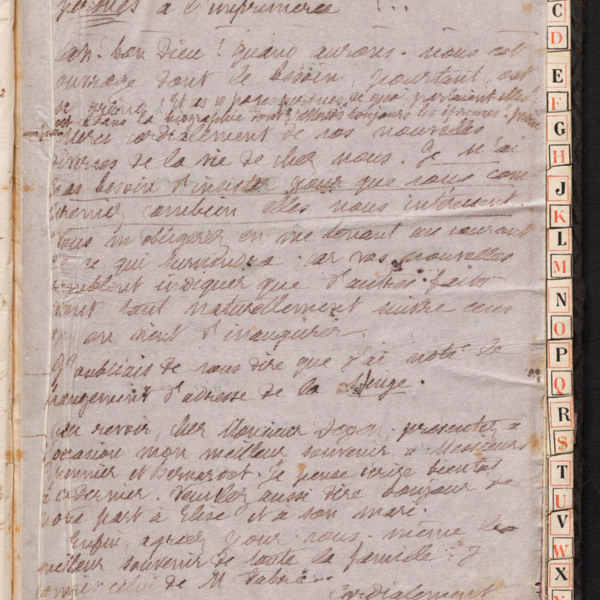 à l'imprimerie !!!
Ah! bon Dieu! quand aurons-nous cet
ouvrage dont le besoin, pourtant, est
dans la biographie toujours
Merci cordialement de vos nouvelles
diverses de la vie de chez nous. Je n'ai
pas besoin d'insister pour que vous com
preniez combien elles nous intéressent.
Vous m'obligerez en me tenant au courant
de ce qui surviendra car vos nouvelles
semblent indiquer que d'autres faits
vont tout naturellement suivre ceux
on vient d'inaugurer.
J'oubliais de vous dire que j'ai noté le
changement d'adresse de la
Au revoir, cher Monsieur présentez à
occasion mon meilleur souvenir à Messieurs
et Bernardot. Je pense écrire bientôt
à ce dernier. Veuillez aussi dire bonjour de
notre part à Elise et à son mari.
Enfin, agréez pour vous-même le
meilleur souvenir de toute la famille
celui de M. Fabre.
Cordialement
C
D
E
F
G
H
J
K
L
M
N
O
P
Q
R
S
T
U
V
W
X